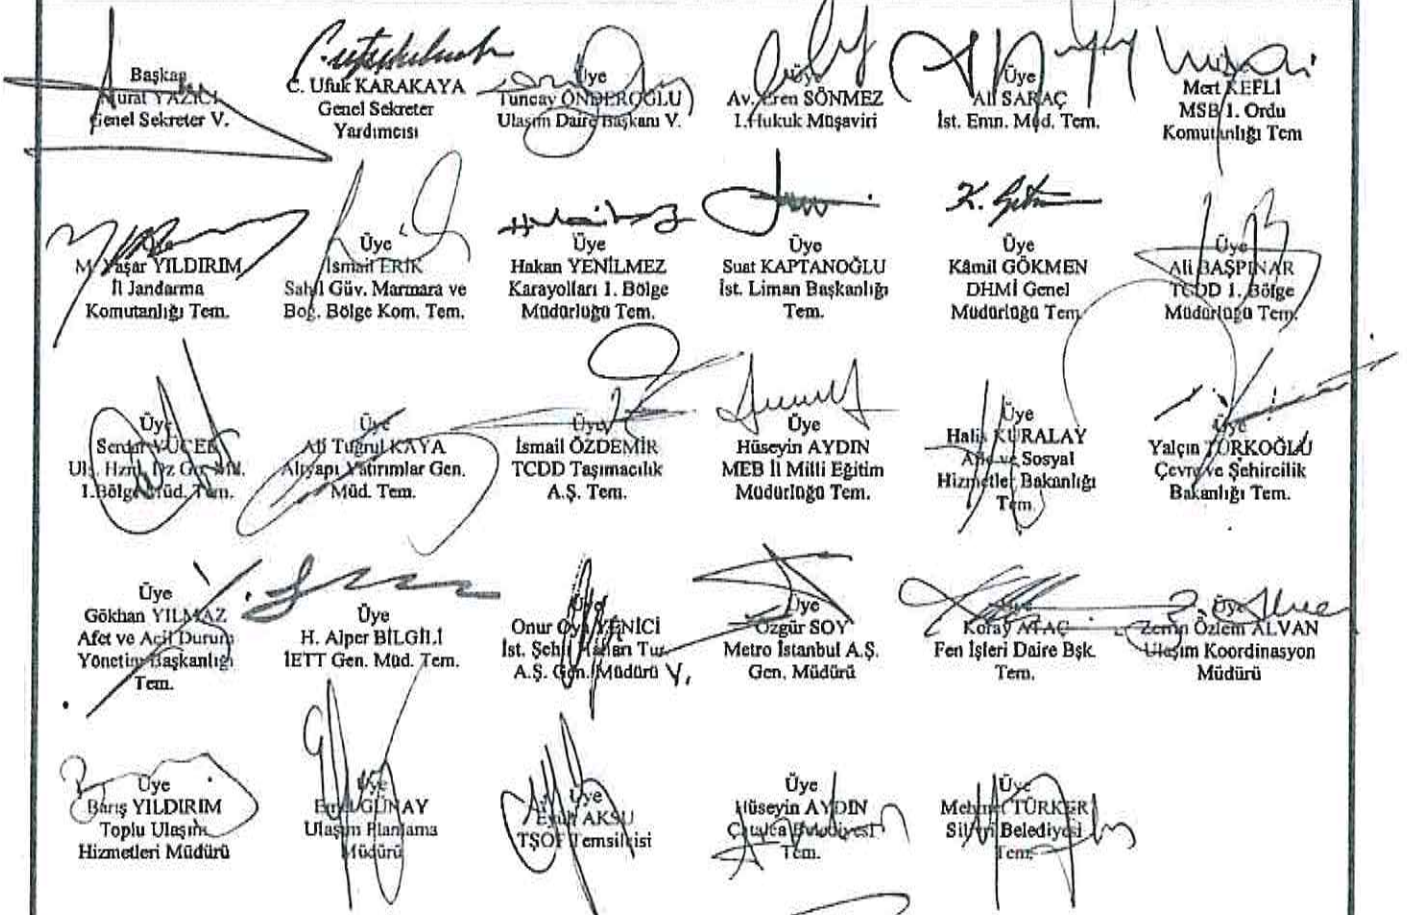 Başkan
Murat YAZICI
Genel Sekreter V.
C. Ufuk KARAKAYA
Genel Sekreter
Yardımcısı
Üye
Tuncay ÖNDEROĞLU
Ulaşım Daire Başkanı V.
Üye
Av. Eren SÖNMEZ
1.Hukuk Müşaviri
Üye
Ali SARAÇ
İst. Emn. Müd. Tem.
Mert KEFLİ
MSB 1. Ordu
Komutanlığı Tem
Üye
M. Yaşar YILDIRIM
İl Jandarma
Komutanlığı Tem.
Üye
İsmail ERİK
Sahil Güv. Marmara ve
Boğ. Bölge Kom. Tem.
Üye
Hakan YENİLMEZ
Karayolları 1. Bölge
Müdürlüğü Tem.
Üye
Suat KAPTANOĞLU
İst. Liman Başkanlığı
Tem.
K. Gökmen
Üye
Kâmil GÖKMEN
DHMİ Genel
Müdürlüğü Tem
Üye
Ali BAŞPINAR
TCDD 1. Bölge
Müdürlüğü Tem.
Üye
Serdar YÜCEL
1.Bölge Müd. Tem.
Üye
Ali Tuğrul KAYA
Altyapı Yatırımlar Gen.
Müd. Tem.
Üye
İsmail ÖZDEMİR
TCDD Taşımacılık
A.Ş. Tem.
Üye
Hüseyin AYDIN
MEB İl Milli Eğitim
Müdürlüğü Tem.
Üye
Halis KURALAY
Aile ve Sosyal
Hizmetler Bakanlığı
Tem.
Üye
Yalçın TÜRKOĞLU
Çevre ve Şehircilik
Bakanlığı Tem.
Üye
Gökhan YILMAZ
Afet ve Acil Durum
Yönetim Başkanlığı
Tem.
Üye
H. Alper BİLGİLİ
İETT Gen. Müd. Tem.
Üye
Onur Oya YENİCİ
İst. Şehir Hatları Tur.
A.Ş. Gen. Müdürü V.
Üye
Özgür SOY
Metro İstanbul A.Ş.
Gen. Müdürü
Üye
Koray ATAÇ
Fen İşleri Daire Bşk.
Tem.
Üye
Zemin Özlem ALVAN
Ulaşım Koordinasyon
Müdürü
Üye
Barış YILDIRIM
Toplu Ulaşım
Hizmetleri Müdürü
Üye
GÜNAY
Ulaşım Planlama
Müdürü
Üye
Eyüp AKSU
TŞOF Temsilcisi
Üye
Hüseyin AYDIN
Çatalca Belediyesi
Tem.
Üye
Mehmet TÜRKER
Silivri Belediyesi
Tem.